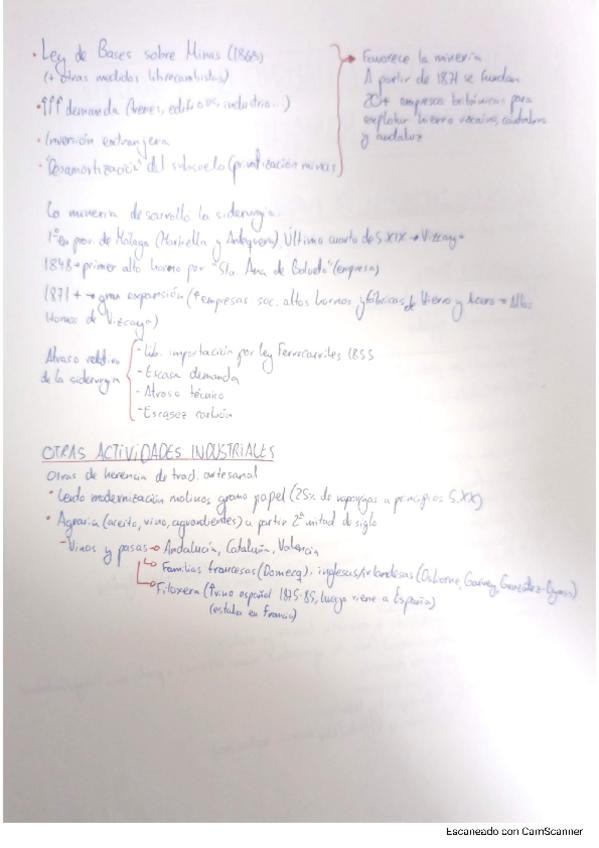 • Ley de Bases sobre Minas (1868)
(+ otras medidas librecambistas)
• ↑↑↑ demanda (trenes, edificios, industria...)
• Inversión extranjera
• "Desamortización" del subsuelo (privatización minas)
Favorece la minería
A partir de 1871 se fundan
20+ empresas británicas para
explotar hierro vizcaíno, cántabro
y andaluz
La minería desarrolló la siderurgia.
1º en prov. de Málaga (Marbella y Antequera), Último cuarto de S.XIX → Vizcaya
1848 → primer alto horno por "Sta. Ana de Bolueta" (empresa)
1871 + → gran expansión (↑ empresas soc. altos hornos y fábricas de Hierro y Acero → Altos
Hornos de Vizcaya)
Atraso relativo
de la siderurgia
- Lib. importación por ley Ferrocarriles 1855
- Escasa demanda
- Atraso técnico
- Escasez carbón
OTRAS ACTIVIDADES INDUSTRIALES
Otras de herencia de trad. artesanal
• Lenta modernización molinos grano papel (25% de vapor/gas a principios S.XX)
• Agraria (aceite, vino, aguardientes) a partir 2ª mitad de siglo
- Vinos y pasas → Andalucía, Cataluña, Valencia
Familias francesas (Domecq), inglesas/irlandesas (Osborne, Garvey, González-Byass)
Filoxera (↑vino español 1875-85, luego viene a España)
(estaba en Francia)
Escaneado con CamScanner